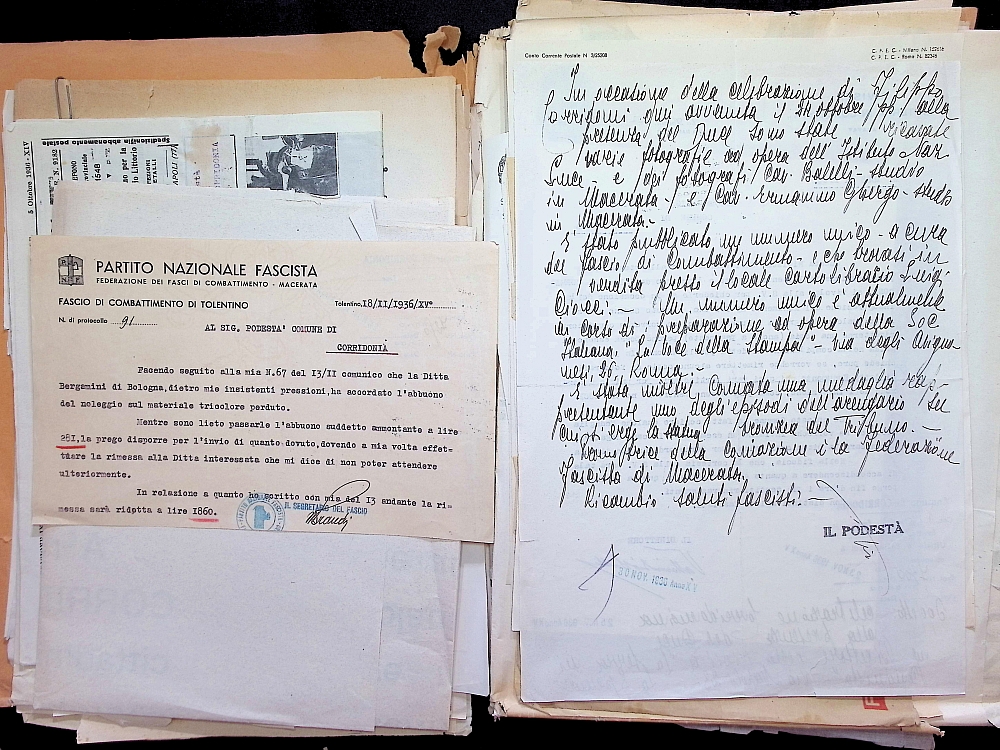 5 Ottobre 1936 - XIV
Spedizione in abbonamento postale
PARTITO NAZIONALE FASCISTA
FEDERAZIONE DEI FASCI DI COMBATTIMENTO - MACERATA
FASCIO DI COMBATTIMENTO DI TOLENTINO
Tolentino,18/II/1936/XV°
N. di protocollo 91
AL SIG. PODESTA' COMUNE DI
CORRIDONIA
Facendo seguito alla mia N.67 del I3/II comunico che la Ditta
Bergamini di Bologna,dietro mie insistenti pressioni,ha accordato l'abbuono
del noleggio sul materiale tricolore perduto.
Mentre sono lieto passarle l'abbuono suddetto ammontante a lire
281,la prego disporre per l'invio di quanto dovuto,dovendo a mia volta effet-
tuare la rimessa alla Ditta interessata che mi dice di non poter attendere
ulteriormente.
In relazione a quanto ho scritto con mia del I3 andante la ri-
messa sarà ridotta a lire I860.
IL SEGRETARIO DEL FASCIO
Conto Corrente Postale N 3/25208
C. P. E. C. - Milano N.
C. P. E. C. - Roma N.
In occasione della celebrazione di Filippo
Corridoni qui avvenuta il 24 ottobre alla
presenza del Duce sono state ricavate
varie fotografie ad opera dell'Istituto Naz
Luce - e dei fotografi Cav. Balelli - studio
in Macerata - e Cav. Ermanno - studio
in Macerata. -
E' stato pubblicato un numero unico - a cura
del Fascio di Combattimento - e che trovasi in
vendita presso il locale cartolibraio Luigi
Ciocci: - Un numero unico è attualmente
in corso di preparazione ad opera della Soc
Italiana "La voce della Stampa" - via degli
26. Roma. -
E' stata inoltre coniata una medaglia rap-
presentante uno degli episodi dell'arengario su
cui si erge la statua bronzea del Tribuno. -
della coniazione è la Federazione
Fascista di Macerata.
Ricambio saluti fascisti: -
IL PODESTÀ